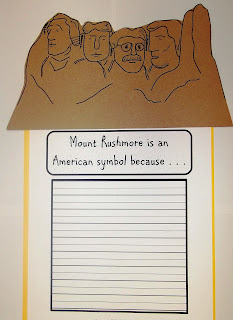 Mount Rushmore is an
American symbol because . . .